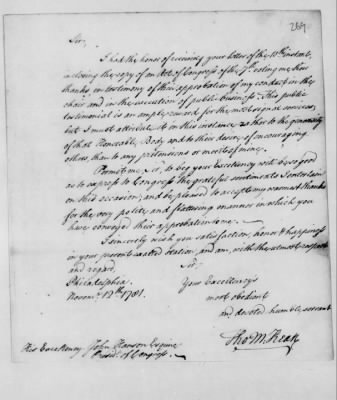 269
Sir,
I had the honor of receiving your letter of the 10th instant,
inclosing the copy of an Act of Congress of the 7th voting me their
thanks in testimony of their approbation of my conduct in the
chair and in the execution of public business. This public
testimonial is an ample reward for the most signal services,
but I must attribute it on this instance rather to the generosity
of that Honorable Body and to their desire of encouraging
others than to any pretensions or merits of mine.
Permit me, sir, to beg your Excellency will be so good
as to express to Congress the grateful sentiments I entertain
on this occasion; and be pleased to accept my warmest thanks
for the very polite and flattering manner in which you
have conveyed their approbation to me.
I sincerely wish you satisfaction, honor & happiness
in your present exalted station, and am, with the utmost respect
and regard,
Sir,
Philadelphia
Novemr. 12th. 1781.
Your Excellency's
most obedient
and devoted humble servant
Tho M:Kean
His Excellency John Hanson Esquire
Presidt. of Congress.